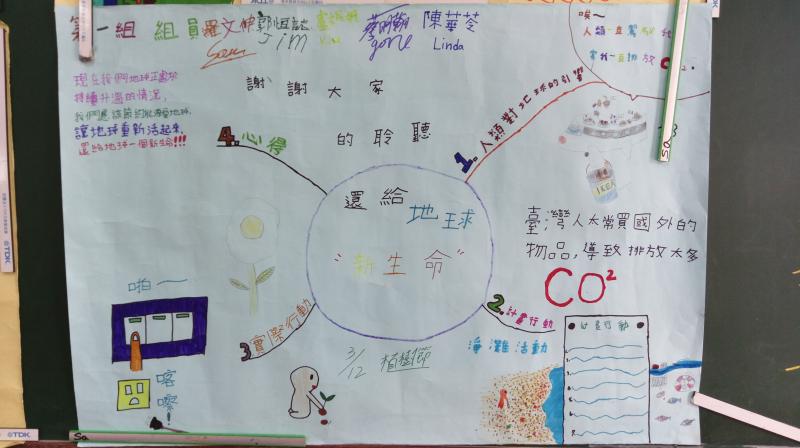 第一組 組員 羅文伸 郭恆誌 蔡明翰 陳華苓
Jim gone Linda
唉~
人類一直駕放
害我一直排放
CO2
現在我們地球正處於
持續升溫的情況,
我們應該節約能源愛地球,
讓地球重新活起來,
還給地球一個新生命!!!
謝謝大家
的聆聽
4.心得
1.人類對地球的影響
還給地球
"新生命"
IKEA
臺灣人太常買國外的
物品,導致排放太多
CO2
2.計畫行動
淨灘活動
計畫行動
3.實際行動
3/12 植樹節
啪—
喀嚓!
TDK
TDK